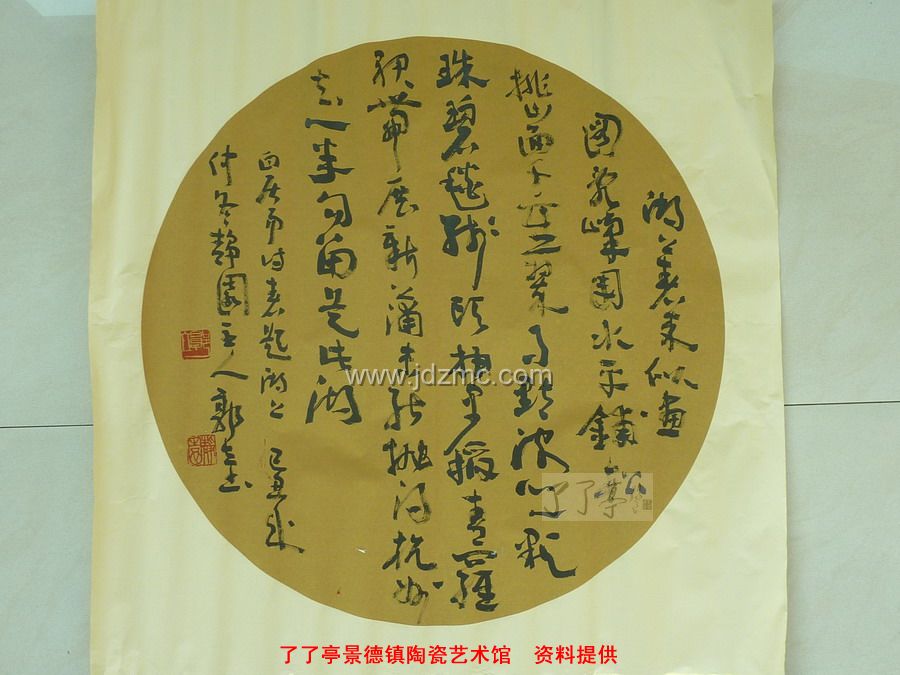 湖上春来似畫
圖亂峰圍水平鋪松
排山面千重翠月點波心一颗
珠碧毯线頭抽早稻青羅
裙帶展新蒲未能抛得杭州
去一半勾留是此湖
白居易詩春題湖上 己丑
仲冬静園主人郭志
www.jdzmc.com
了了亭
了了亭景德镇陶瓷艺术馆 资料提供